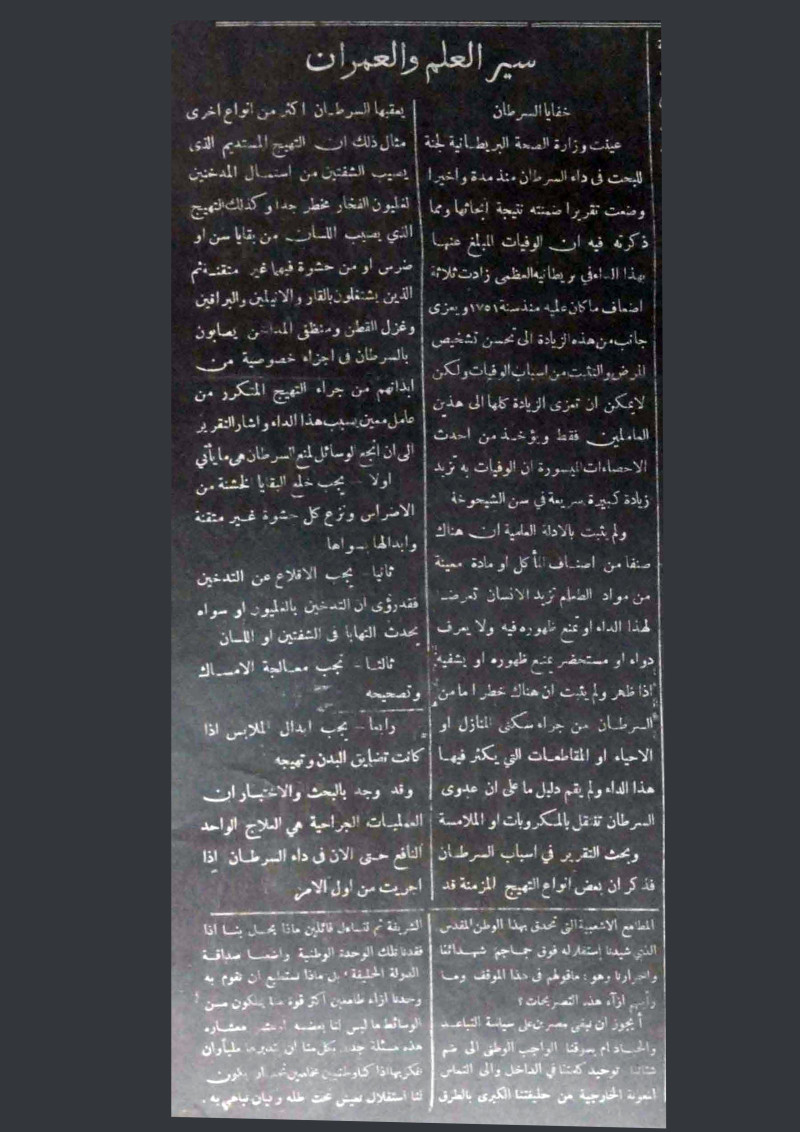 سير العلم والعمران
خفايا السرطان
عينت وزارة الصحة البريطانية لجنة
للبحث فى داء السرطان منذ مدة واخيرا
وضعت تقريرا ضمنته نتيجة ابحاثها ومما
ذكرته فيه ان الوفيات المبلغ عنها
بهذا الداء في بريطانيه العظمى زادت ثلاثة
اضعاف ما كان عليه منذ سنة ١٧٥١ ويعزى
جانب من هذه الزيادة الى تحسن تشخيص
المرض والتثبت من اسباب الوفيات ولكن
لايمكن ان تعزى الزيادة كلها الى هذين
العاملين فقط ويؤخذ من احدث
الاحصاءات الميسورة ان الوفيات به تزيد
زيادة كبيرة سريعة في سن الشيخوخة
ولم يثبت بالادلة العلمية ان هناك
صنفا من اصناف المأكل او مادة معينة
من مواد الطعام تزيد الانسان تعرضا
لهذا الداء او تمنع ظهوره فيه ولا يعرف
دواء او مستحضر يمنع ظهوره او يشفيه
اذا ظهر ولم يثبت ان هناك خطرا ما من
السرطان من جراء سكنى المنازل او
الاحياء او المقاطعات التي يكثر فيها
هذا الداء ولم يقم دليل ما على ان عدوى
السرطان تنتقل بالمكروبات او الملامسة
وبحث التقرير في اسباب السرطان
فذكر ان بعض انواع التهيج المزمنة قد
يعقبها السرطان اكثر من انواع اخرى
مثال ذلك ان التهيج المستديم الذى
يصيب الشفتين من استعمال المدخنين
لغليون الفخار مخطر جدا وكذلك التهيج
الذي يصيب اللسان من بقايا سن او
ضرس او من حشوة فيها غير متقنة ثم
الذين يشتغلون بالقار والانيلين والبرافين
وغزل القطن ومنظفى المداخن يصابون
بالسرطان فى اجزاء خصوصية من
ابدانهم من جراء التهيج المتكرر من
عامل معين يسبب هذا الداء واشار التقرير
الى ان انجع الوسائل لمنع السرطان هى ما يأتي
اولا – يجب خلع البقايا الخشنة من
الاضراس ونزع كل حشوة غير متقنة
وابدالها بسواها
ثانيا – يجب الاقلاع عن التدخين
فقد رؤى ان التدخين بالغليون او سواه
يحدث التهابا فى الشفتين او اللسان
ثالثا – تجب معالجة الامساك
وتصحيحه
رابعا – يجب ابدال الملابس اذا
كانت تضايق البدن وتهيجه
وقد وجد بالبحث والاختبار ان
العمليات الجراحية هي العلاج الواحد
النافع حتى الان فى داء السرطان إذا
اجريت من اول الامر
المطامع الاشعبية التى تحدق بهذا الوطن المقدس
الذي شيدنا إستقلاله فوق جماجم شهدائنا
واحرارنا وهو: ماقولهم فى هذا الموقف وما
رأيهم ازآء هذه التصريحات؟
أيجوز ان نبقى مصرين على سياسة التباعد
والحياد ام يسوقنا الواجب الوطنى الى ضم
شتاتنا توحيد كلمتنا في الداخل والى التماس
المعونة الخارجية من حليفتنا الكبرى بالطرق
الشريفة ثم نتساءل قائلين ماذا يحل بنا اذا
فقدنا تلك الوحدة الوطنية واضعنا صداقة
الدولة الحليفة بل ماذا نستطيع ان نقوم به
وحدنا ازاء طامعين اكثر قوة منا يملكون من
الوسائط ما ليس لنا بعضه او عشر معشاره
هذه مسئلة جد على كل منا ان يتدبرها مليا وان
يفكر بها اذا كنا وطنيين مخلصين
لنا استقلال نعيش تحت ظله وكيان نباهي به.